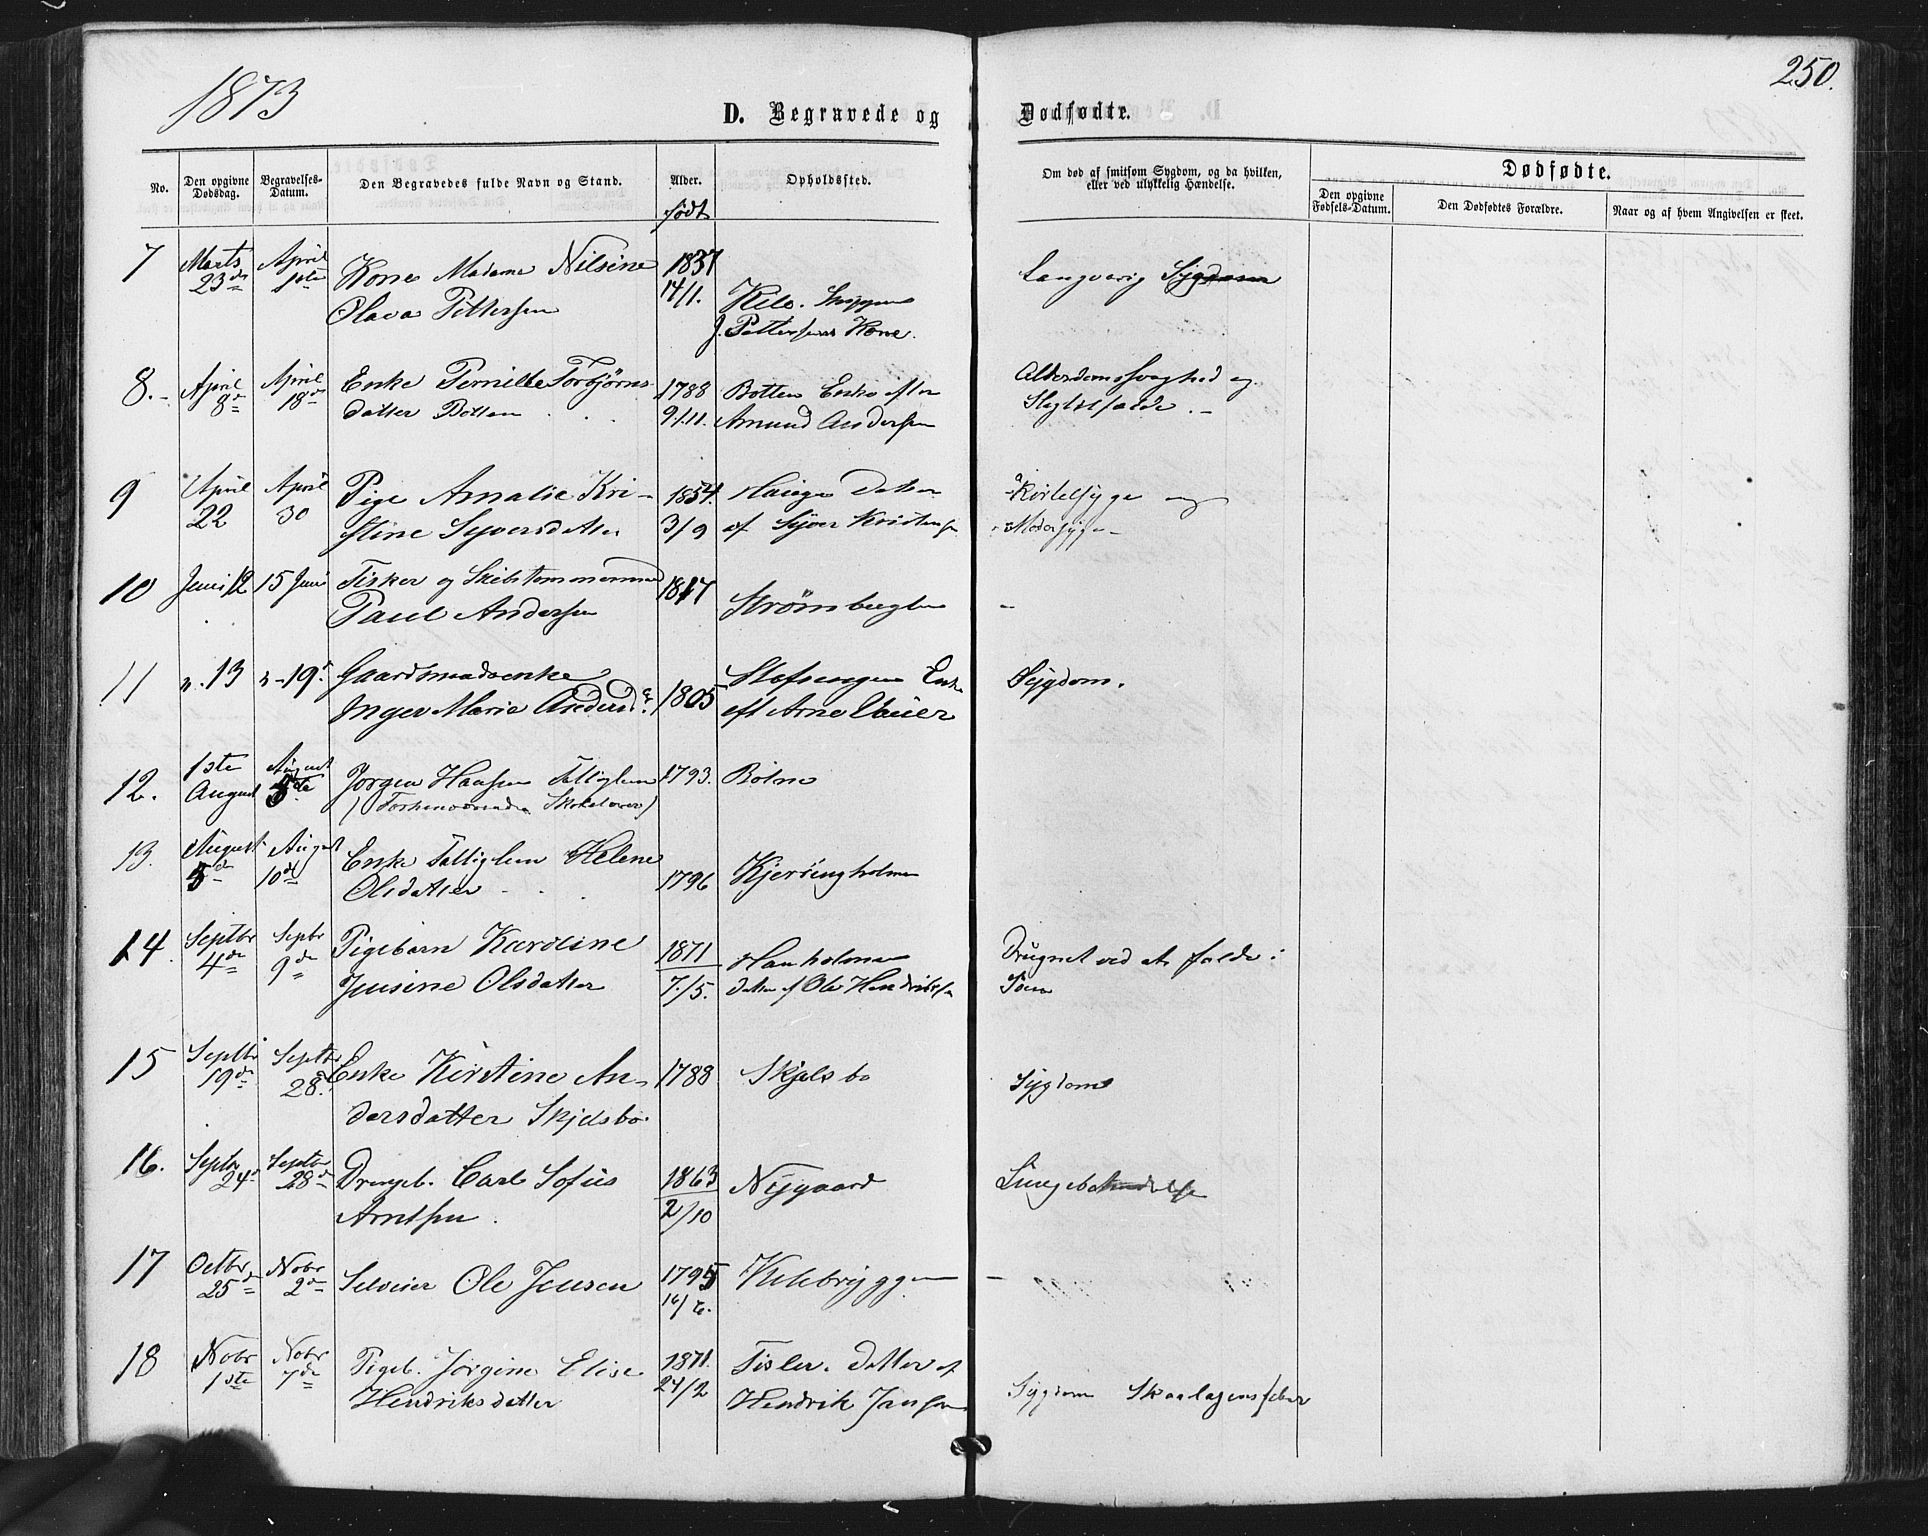 1873
250.
D. Begravede og Dødfødte.
No.
Den opgivne Dødsdag.
Begravelses-Datum.
Den Begravedes fulde Navn og Stand.
Alder.
født
Opholdssted.
Om død af smitsom Sygdom, og da hvilken,
eller ved ulykkelig Hændelse.
Dødfødte.
Den opgivne Fødsels-Datum.
Den Dødfødtes Forældre.
Naar og af hvem Angivelsen er skeet.
7 Marts April Kone Madame Nilsine 1837 Langvarig Sygdom
23de 1ste Olava Pettersen 14/1. Kile. Skipper
J. Pettersens Kone.
8. April April Enke Pernille Torbjørns 1788 Botten Enke efter Alderdomssvaghed og
8de 18de datter Botten 9/11. Amund Andersen Slagtilfælde.
9 April April Pige Amalie Kri- 1854. Hauge Datter Kirtelsyge og
22 30 stine Syversdatter 3/9 af Syver Kristensen Modersyge
10 Juni 12 15 Juni Fisker og Skibstømmermand 1817 -
Paul Andersen Strømtangen
11 " 13 " 19de Gaardmandsenke Enke Sygdom.
Inger Marie Andersd. 1805 eft Arne
12. 1ste August Jørgen Hansen Fattiglem 1793. Botne
August 5te (Forhenværende )
13. August August Enke Fattiglem Helene
5de 10de Olsdatter 1796 Kjeringholmen
14. Septbr Sepbr Pigebarn Karoline 1871 Drugnet ved at falde i
4de 9de Jensine Olsdatter 7/5. datter af Ole Hendriksen Søen
15 Septbr Septbr Enke Kirstine An- 1788 Skjelsbo Sygdom
19de 28de dersdatter Skjelsbo
16. Septbr Septbr Drengeb. Carl Sofus 1863 Nygaard Lungebetændelse
24de 28de Arntsen. 2/10
17 Octbr Nobr Selveier Ole Jensen 1795 Kilebryggen -
25de 2de 16/6.
18 Nobr Nobr Pigeb. Jørgine Elise 1871. Tisler. Datter af
1ste 7de Hendriksdatter 24/2 Hendrik Jansen Sygdom Skarlagensfeber